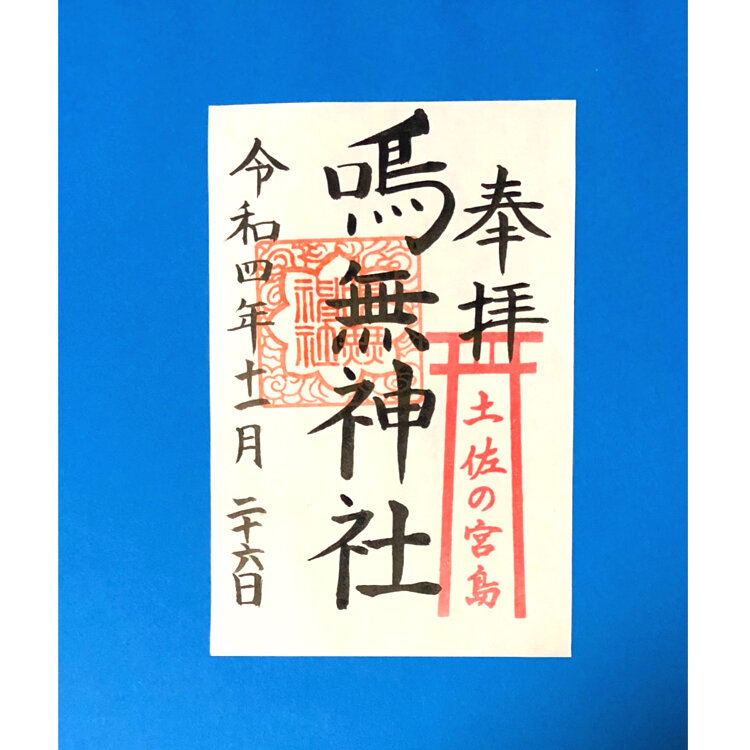 奉拝
土佐の宮島
鳴無神社
令和四年十一月二十六日